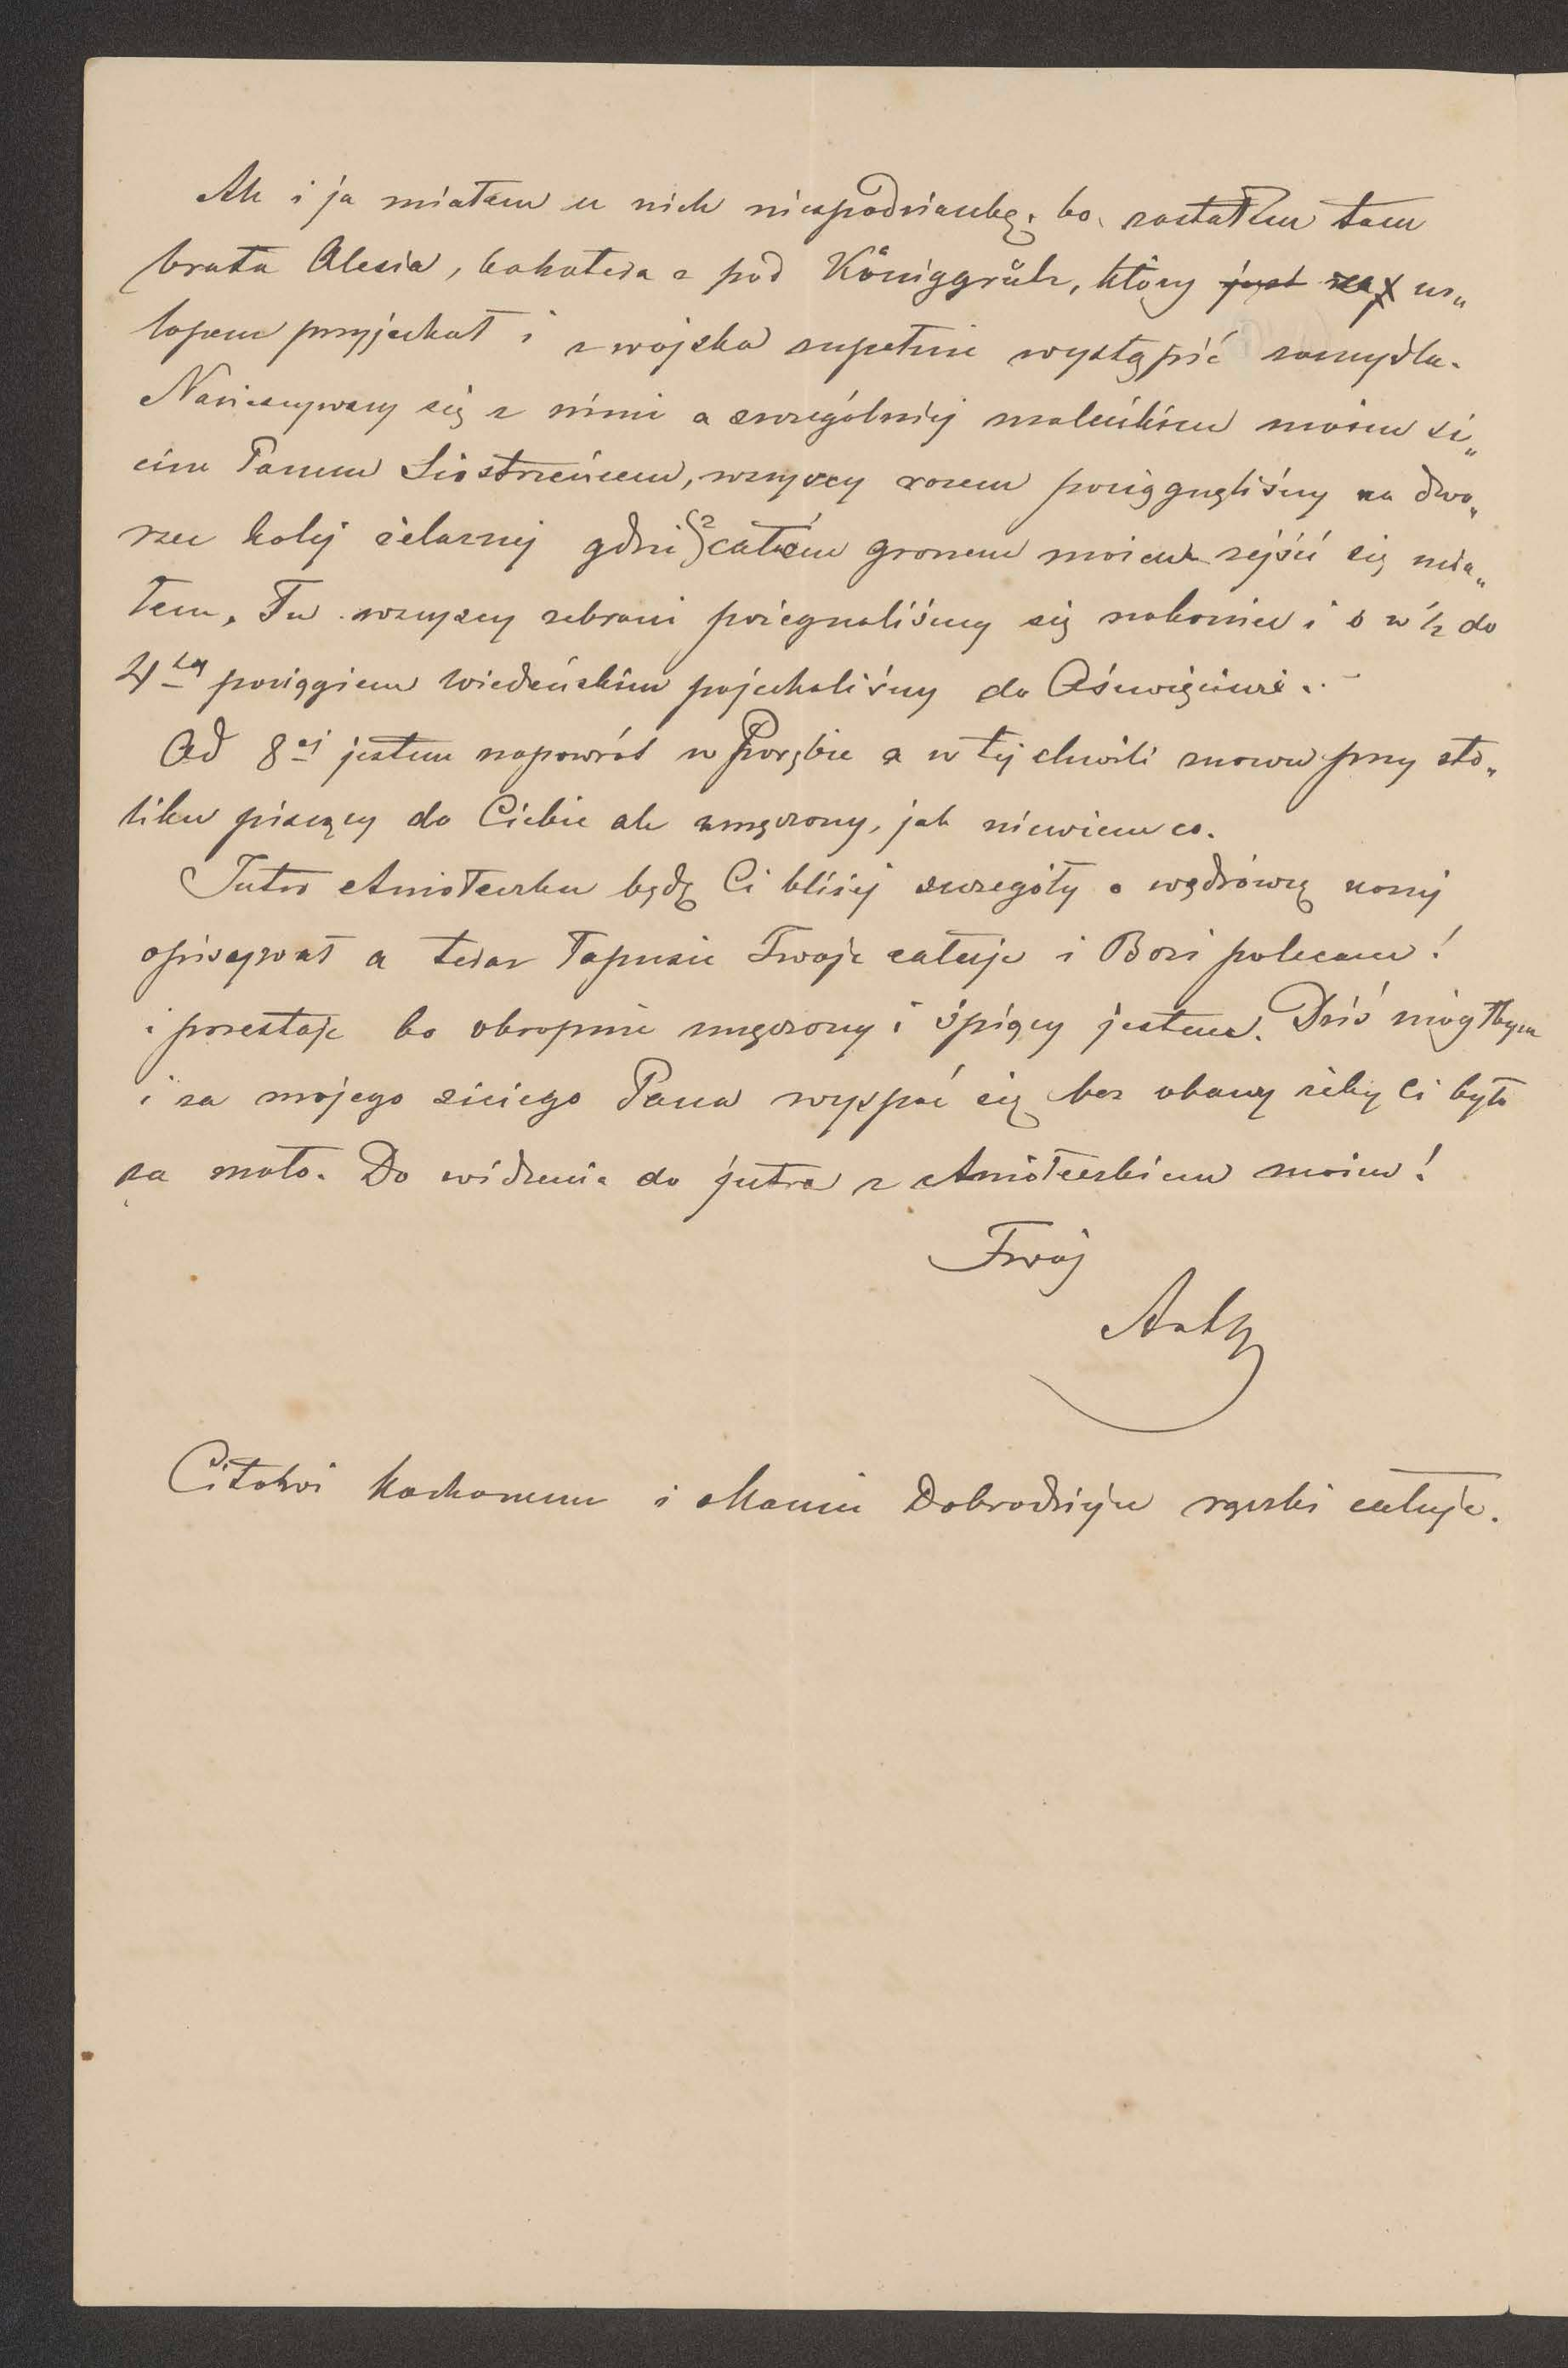 Ale i ja miałem u nich niespodziankę, bo zastałem tam
brata Alesia, bohatera z pod Königgrätz, który jest za ur„
lopem przyjechał i z wojska zupełnie wystąpić zamyśla.
Nacieszywszy się z nimi a szczególniej maleńkim moim zi„
cim Panem Siostrzeńcem, wszyscy razem pociągnęliśmy na dwo„
rzec kolej żelaznej gdzie z całém gronem moiem zejść się mia„
łem. Tu wszyscy zebrani pożegnaliśmy się nakoniec i o w ½ do
4tą pociągiem wiedeńskim pojechaliśmy do Oświęcimia.
Od 8ej jestem napowrót w Porębie a w tej chwili znowu przy sto„
liku piszący do Ciebie ale zmęczony, jak niewiem co.
Jutro Aniołeczku będę Ci bliżej szczegóły o wędrówcę naszej
opisywał a teraz łapusie Twoje całuję i Bozi polecam!
i przestaję bo okropnie zmęczony i śpiący jestem. Dziś mógłbym
i za mojego ziciego Pana wyspać się bez obawy żeby Ci było
za mało. Do widzenia do jutra z Aniołeczkiem moim!
Twój
Anty
Citokoi kochanemu i Mamie Dobrodziejce rączki całuję.